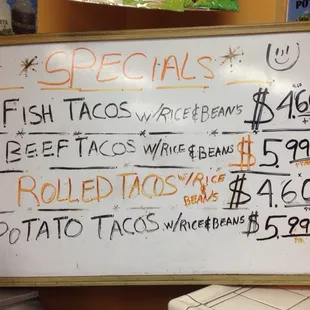 SPECIALS
FISH TACOS W/RICE & BEANS $4.60
BEEF TACOS W/RICE & BEANS $5.99
ROLLED TACOS W/RICE & BEANS $4.60
POTATO TACOS W/RICE & BEANS $5.99